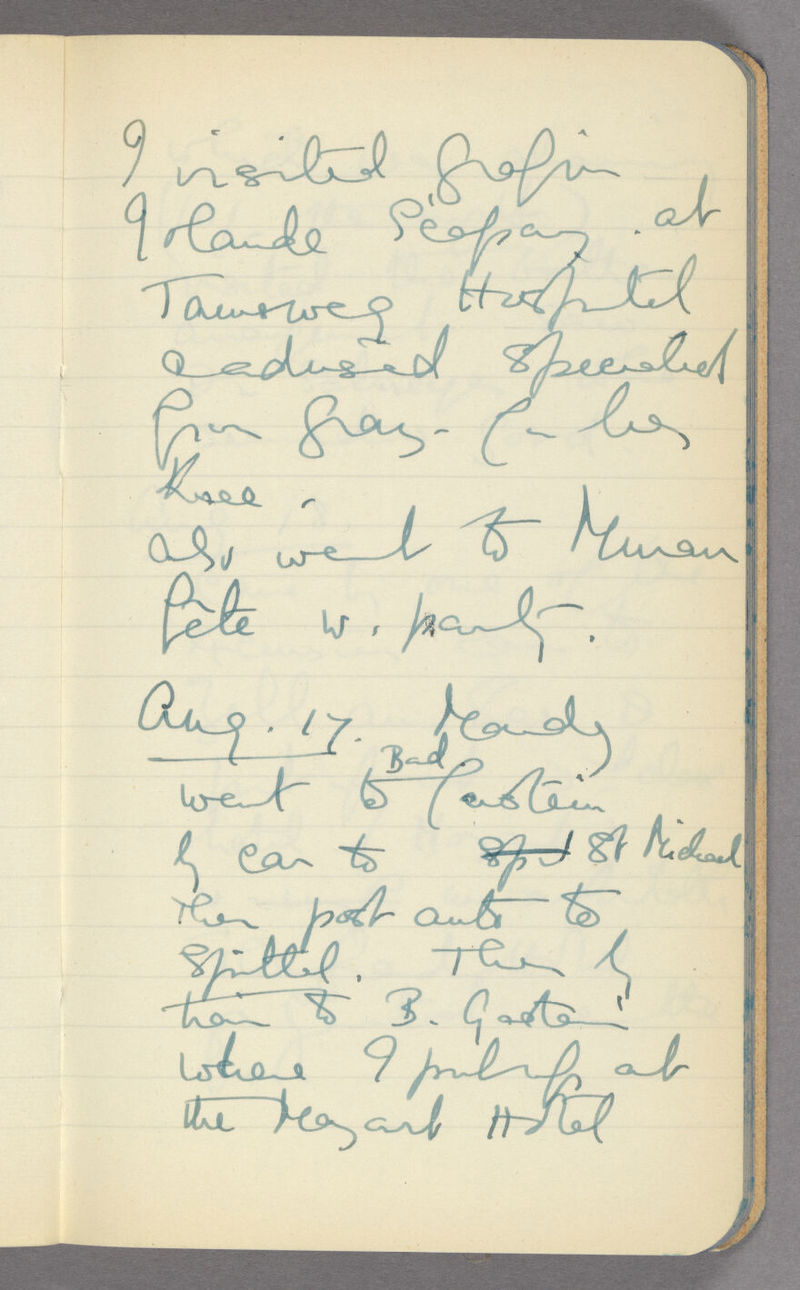 I visited Gräfin
Yolande Szápáry . at
Tamsweg Hospital
& advised specialist
from Graz - for her
Knee .
also went to Murau
fête w. party .
Aug. 17. Monday
went to Bad Gastein
by car to Spit St Michael
then post auto to
Spittel . Then by
train to B. Gastein
where I put up at
the Mozart Hotel